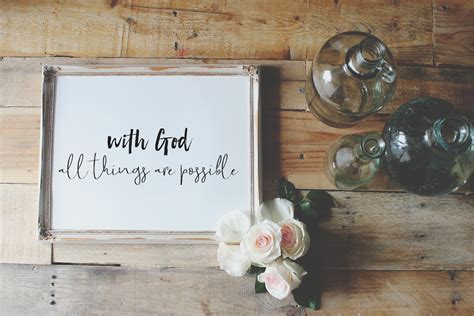 with God
all things are possible